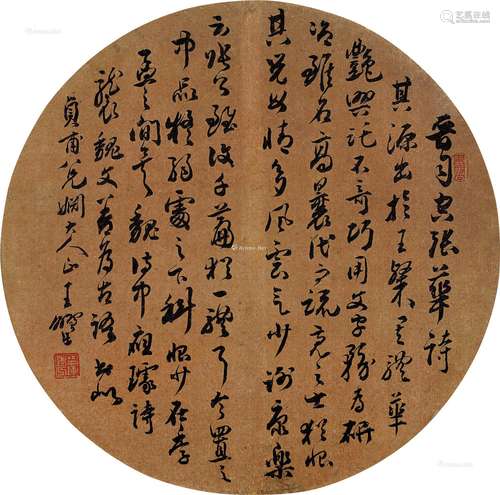 晉司空張華詩
其源出於王粲其體華
艷興託不奇巧用文字務為妍
冶雖名高曩代而疏亮之士猶恨
其兒女情多風雲氣少謝康樂
云張公雖復千篇猶一體耳今置之
中品疑弱處之下科恨少在季
孟之間矣魏侍中應璩詩
襲魏文善為古語
貞甫老姻大人正王